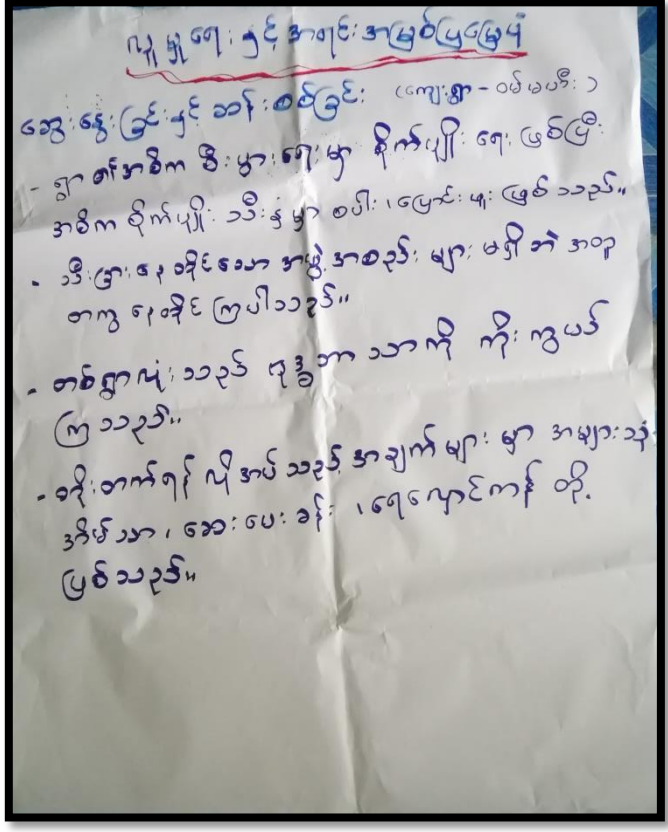 လူမှုရေးနှင့် အရင်းအမြစ်ပြမြေပုံ
ဆွေးနွေးခြင်းနှင့် ဆန်းစစ်ခြင်း (ကျေးရွာ - ဝမ်မဟီး)
- ရွာ၏အဓိက စီးပွားရေးမှာ စိုက်ပျိုးရေး ဖြစ်ပြီး
အဓိက စိုက်ပျိုး သီးနှံမှာ စပါး၊ ပြောင်းဖူး ဖြစ်သည်။
- သီးခြားနေထိုင်သော အဖွဲ့အစည်းများ မရှိဘဲ အတူ
တကွ နေထိုင်ကြပါသည်။
- တစ်ရွာလုံးသည် ဗုဒ္ဓဘာသာကို ကိုးကွယ်
ကြသည်။
- တိုးတက်ရန် လိုအပ်သည့် အချက်များမှာ အများသုံး
အိမ်သာ၊ ဆေးပေးခန်း၊ ရေလှောင်ကန် တို့
ဖြစ်သည်။